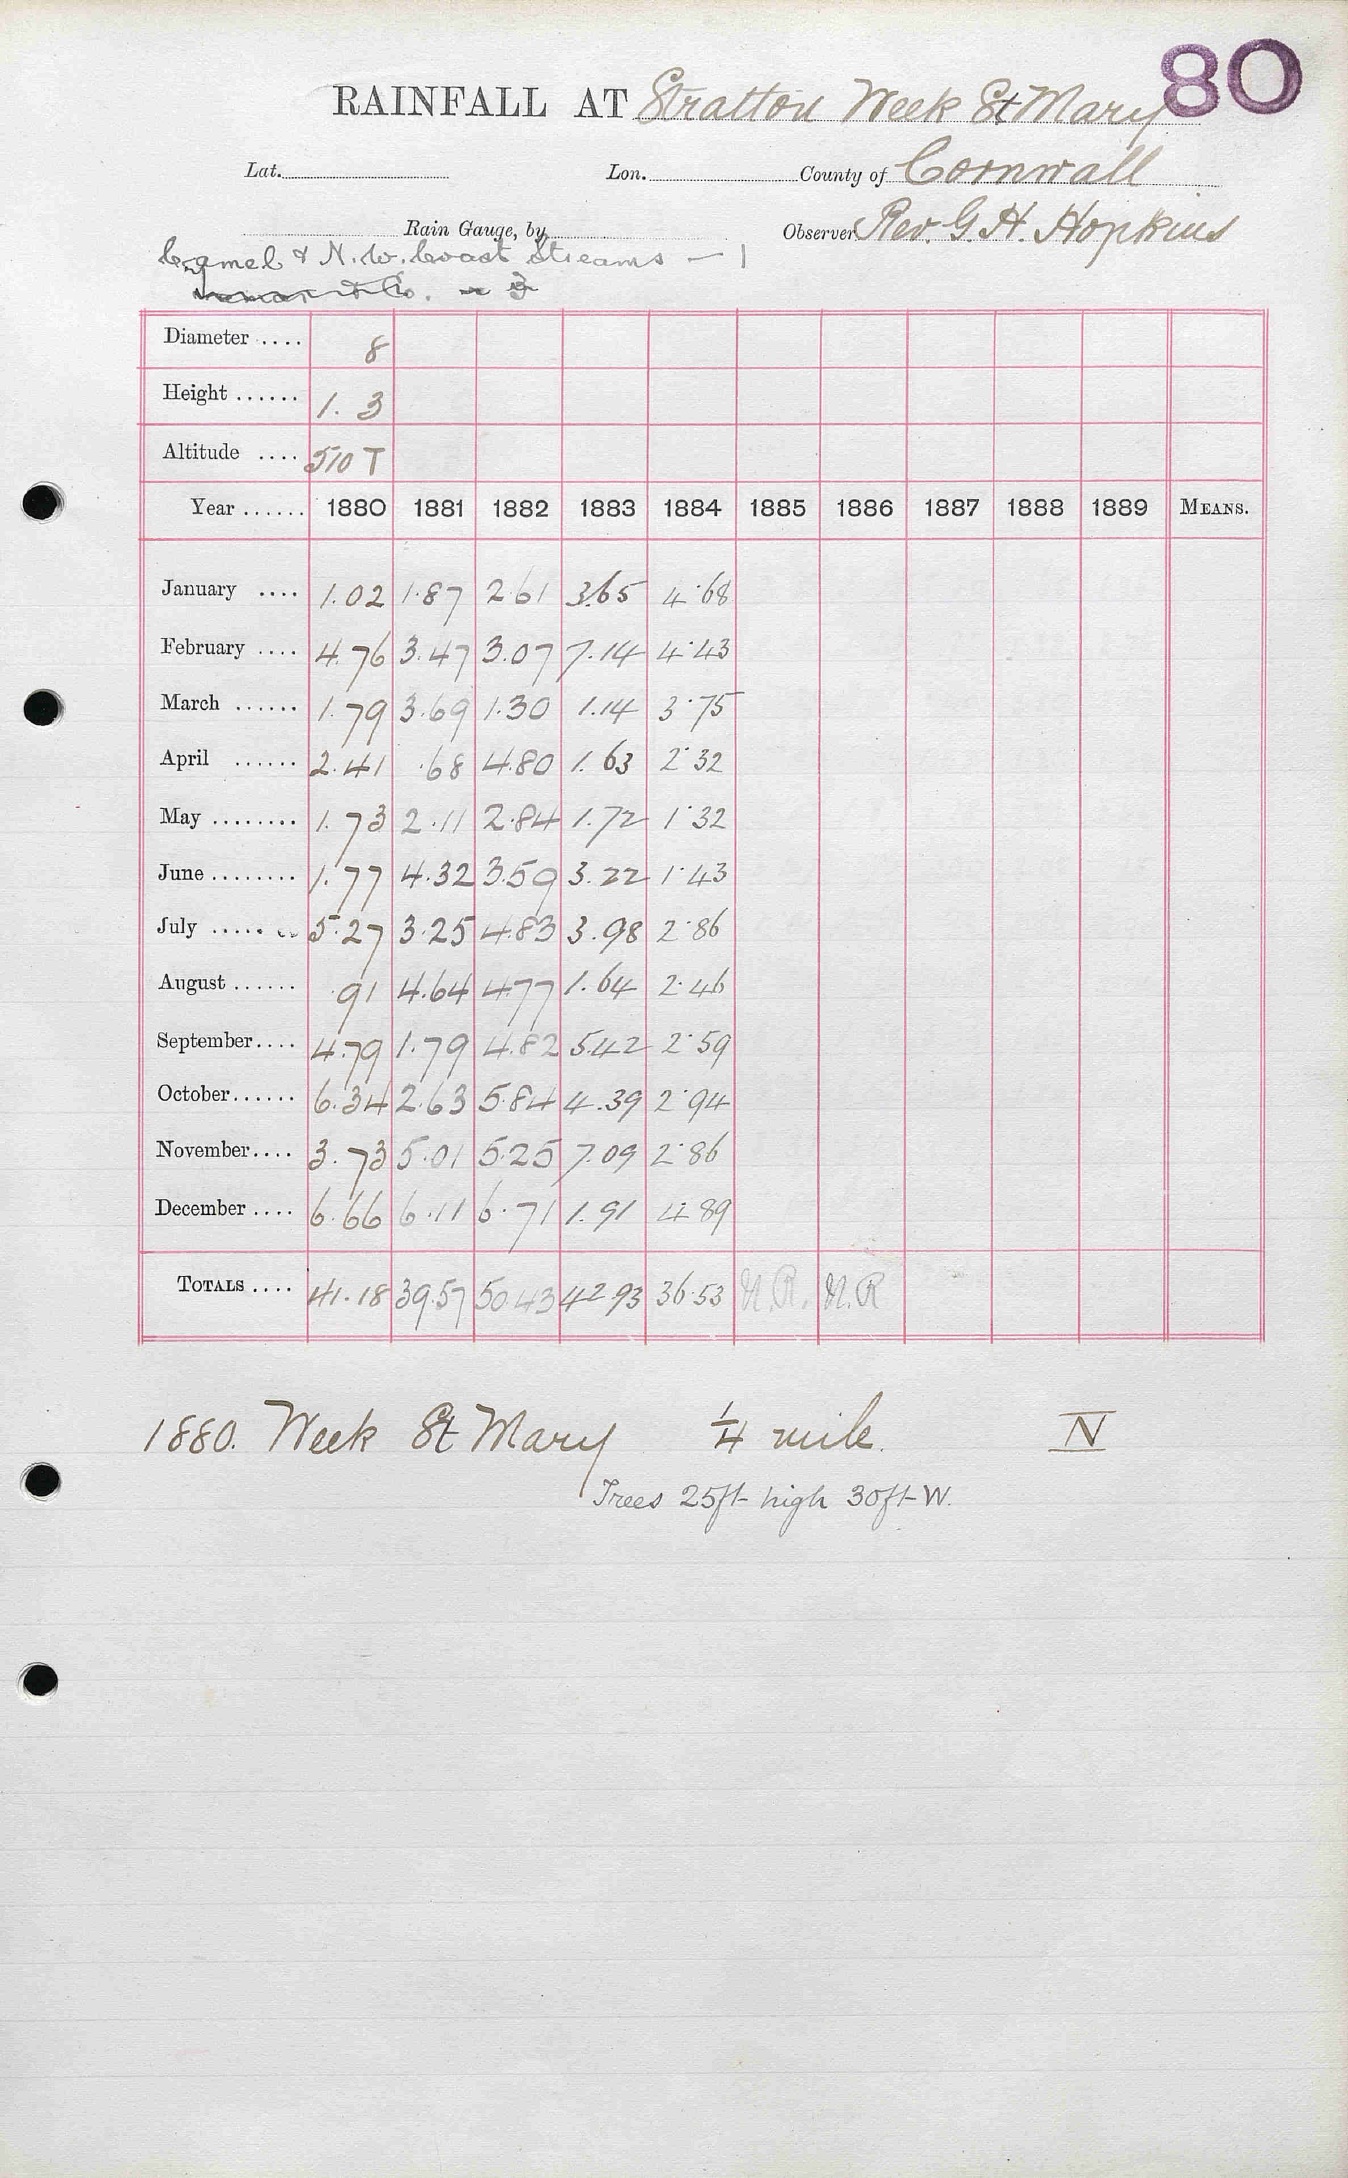 80
RAINFALL AT Stratton Week St Mary
Lat. Lon. County of Cornwall
Rain Gauge, by Observer Rev. G. H. Hopkins
Camel & N.W. Coast Streams — 1
Co. — 3
Diameter .... 8
Height ...... 1. 3
Altitude .... 510 T
Year ...... 1880 1881 1882 1883 1884 1885 1886 1887 1888 1889 MEANS.
January .... 1.02 1.87 2.61 3.65 4.68
February .... 4.76 3.47 3.07 7.14 4.43
March ...... 1.79 3.69 1.30 1.14 3.75
April ...... 2.41 .68 4.80 1.63 2.32
May ........ 1.73 2.11 2.84 1.72 1.32
June ........ 1.77 4.32 3.59 3.22 1.43
July ........ 5.27 3.25 4.83 3.98 2.86
August ...... .91 4.64 4.77 1.64 2.46
September.... 4.79 1.79 4.82 5.42 2.59
October...... 6.34 2.63 5.84 4.39 2.94
November.... 3.73 5.01 5.25 7.09 2.86
December .... 6.66 6.11 6.71 1.91 4.89
TOTALS .... 41.18 39.57 50.43 42.93 36.53 N.R. N.R
1880. Week St Mary 1/4 mile. N
Trees 25ft high 30ft W.